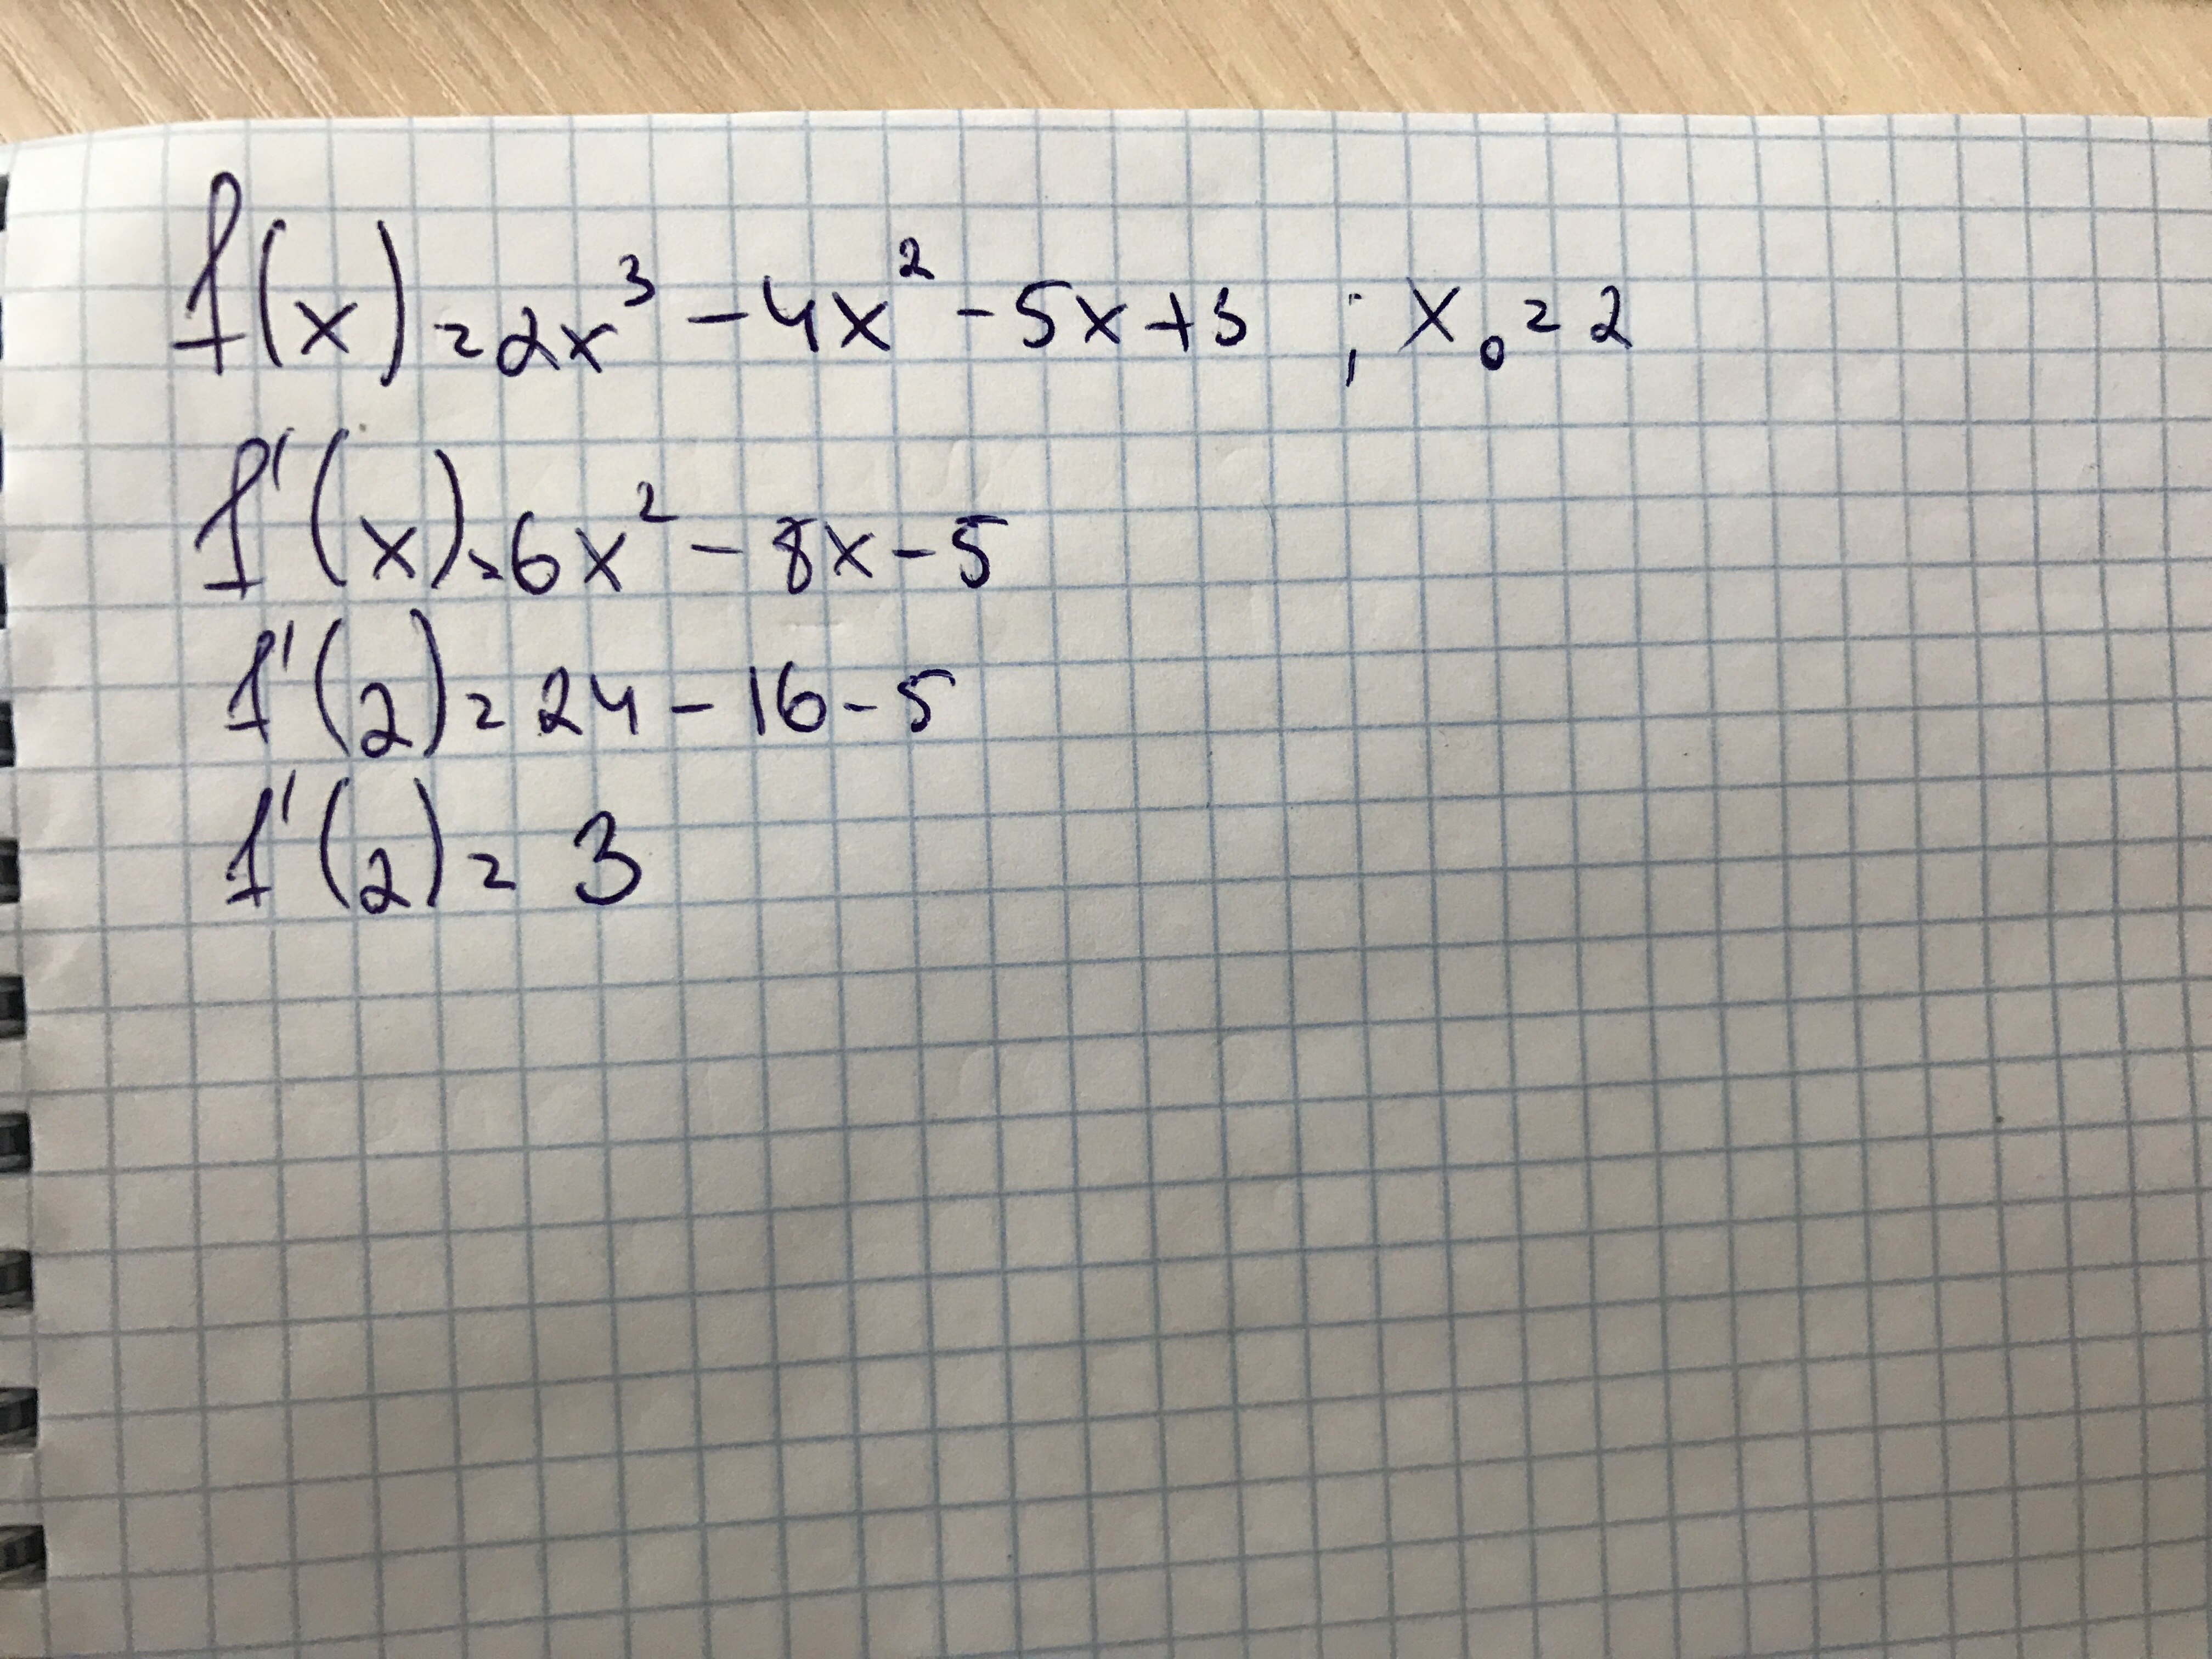 f(x)=2x³-4x²-5x+3 ; x₀=2
f'(x)=6x²-8x-5
f'(2)=24-16-5
f'(2)=3